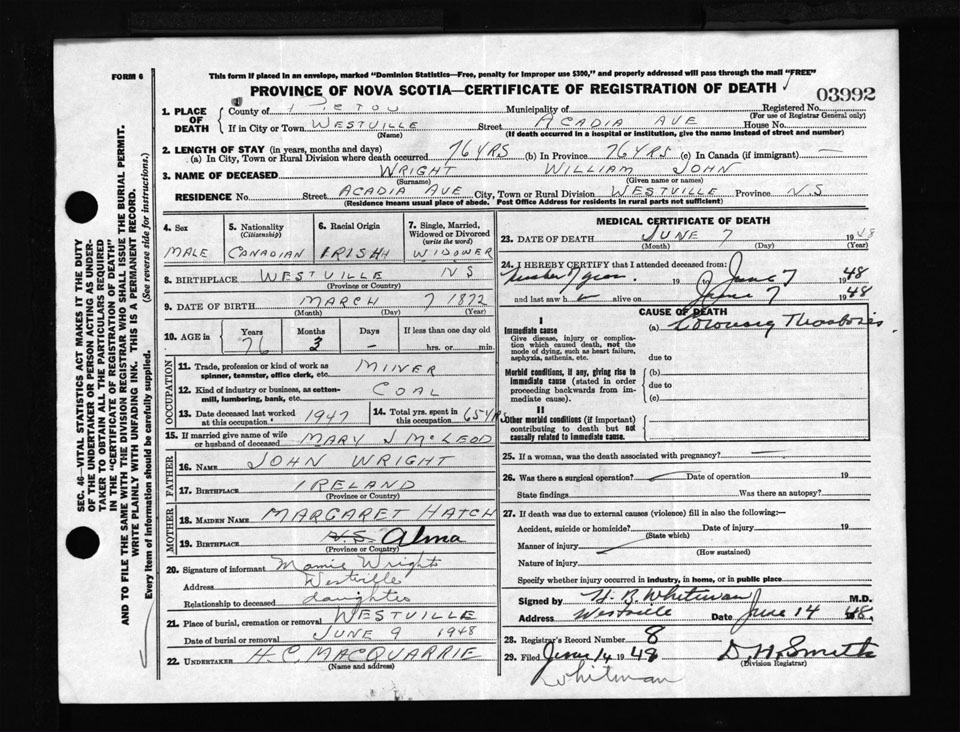 FORM 6
This form if placed in an envelope, marked "Dominion Statistics—Free, penalty for improper use $300," and properly addressed will pass through the mail "FREE"
PROVINCE OF NOVA SCOTIA—CERTIFICATE OF REGISTRATION OF DEATH
03992
1. PLACE OF DEATH
County of PICTOU Municipality of Registered No.
(For use of Registrar General only)
If in City or Town WESTVILLE Street ACADIA AVE House No.
(Name) (If death occurred in a hospital or institution, give the name instead of street and number)
2. LENGTH OF STAY (in years, months and days)
(a) In City, Town or Rural Division where death occurred 76 YRS (b) In Province 76 YRS (c) In Canada (if immigrant) —
3. NAME OF DECEASED WRIGHT WILLIAM JOHN
(Surname) (Given name or names)
RESIDENCE No. Street ACADIA AVE City, Town or Rural Division WESTVILLE Province NS
(Residence means usual place of abode. Post Office Address for residents in rural parts not sufficient)
4. Sex 5. Nationality (Citizenship) 6. Racial Origin 7. Single, Married, Widowed or Divorced (write the word)
MALE CANADIAN IRISH WIDOWER
8. BIRTHPLACE WESTVILLE NS
(Province or Country)
9. DATE OF BIRTH MARCH 7 1872
(Month) (Day) (Year)
10. AGE in Years Months Days If less than one day old
76 3 – hrs. or min.
OCCUPATION
11. Trade, profession or kind of work as spinner, teamster, office clerk, etc. MINER
12. Kind of industry or business, as cotton-mill, lumbering, bank, etc. COAL
13. Date deceased last worked at this occupation 1947 14. Total yrs. spent in this occupation 65 YRS
15. If married give name of wife or husband of deceased MARY J MCLEOD
FATHER
16. NAME JOHN WRIGHT
17. BIRTHPLACE IRELAND
(Province or Country)
MOTHER
18. MAIDEN NAME MARGARET HATCH
19. BIRTHPLACE N.S. Alma
(Province or Country)
20. Signature of informant Mamie Wright
Address Westville
Relationship to deceased daughter
21. Place of burial, cremation or removal WESTVILLE
Date of burial or removal JUNE 9 1948
22. UNDERTAKER H. C. MACQUARRIE
(Name and address)
MEDICAL CERTIFICATE OF DEATH
23. DATE OF DEATH JUNE 7 1948
(Month) (Day) (Year)
24. I HEREBY CERTIFY that I attended deceased from:
number of years 19 to June 7 1948
and last saw h alive on June 7 1948
CAUSE OF DEATH
I
Immediate cause (a)
Give disease, injury or complication which caused death, not the mode of dying, such as heart failure, asphyxia, asthenia, etc.
due to
Morbid conditions, if any, giving rise to immediate cause (stated in order proceeding backwards from immediate cause).
(b)
due to
(c)
II
Other morbid conditions (if important) contributing to death but not causally related to immediate cause.
25. If a woman, was the death associated with pregnancy? —
26. Was there a surgical operation? Date of operation 19
State findings Was there an autopsy?
27. If death was due to external causes (violence) fill in also the following:—
Accident, suicide or homicide? Date of injury 19
(State which)
Manner of injury
(How sustained)
Nature of injury
Specify whether injury occurred in industry, in home, or in public place
Signed by H. B. Whitman M.D.
Address Westville Date June 14 1948.
28. Registrar's Record Number 8
29. Filed June 14 1948 D. H. Smith
(Division Registrar)
Whitman
SEC. 46—VITAL STATISTICS ACT MAKES IT THE DUTY
OF THE UNDERTAKER OR PERSON ACTING AS UNDER-
TAKER TO OBTAIN ALL THE PARTICULARS REQUIRED
IN THE "CERTIFICATE OF REGISTRATION OF DEATH"
AND TO FILE THE SAME WITH THE DIVISION REGISTRAR WHO SHALL ISSUE THE BURIAL PERMIT.
WRITE PLAINLY WITH UNFADING INK. THIS IS A PERMANENT RECORD.
Every item of information should be carefully supplied. (See reverse side for instructions.)